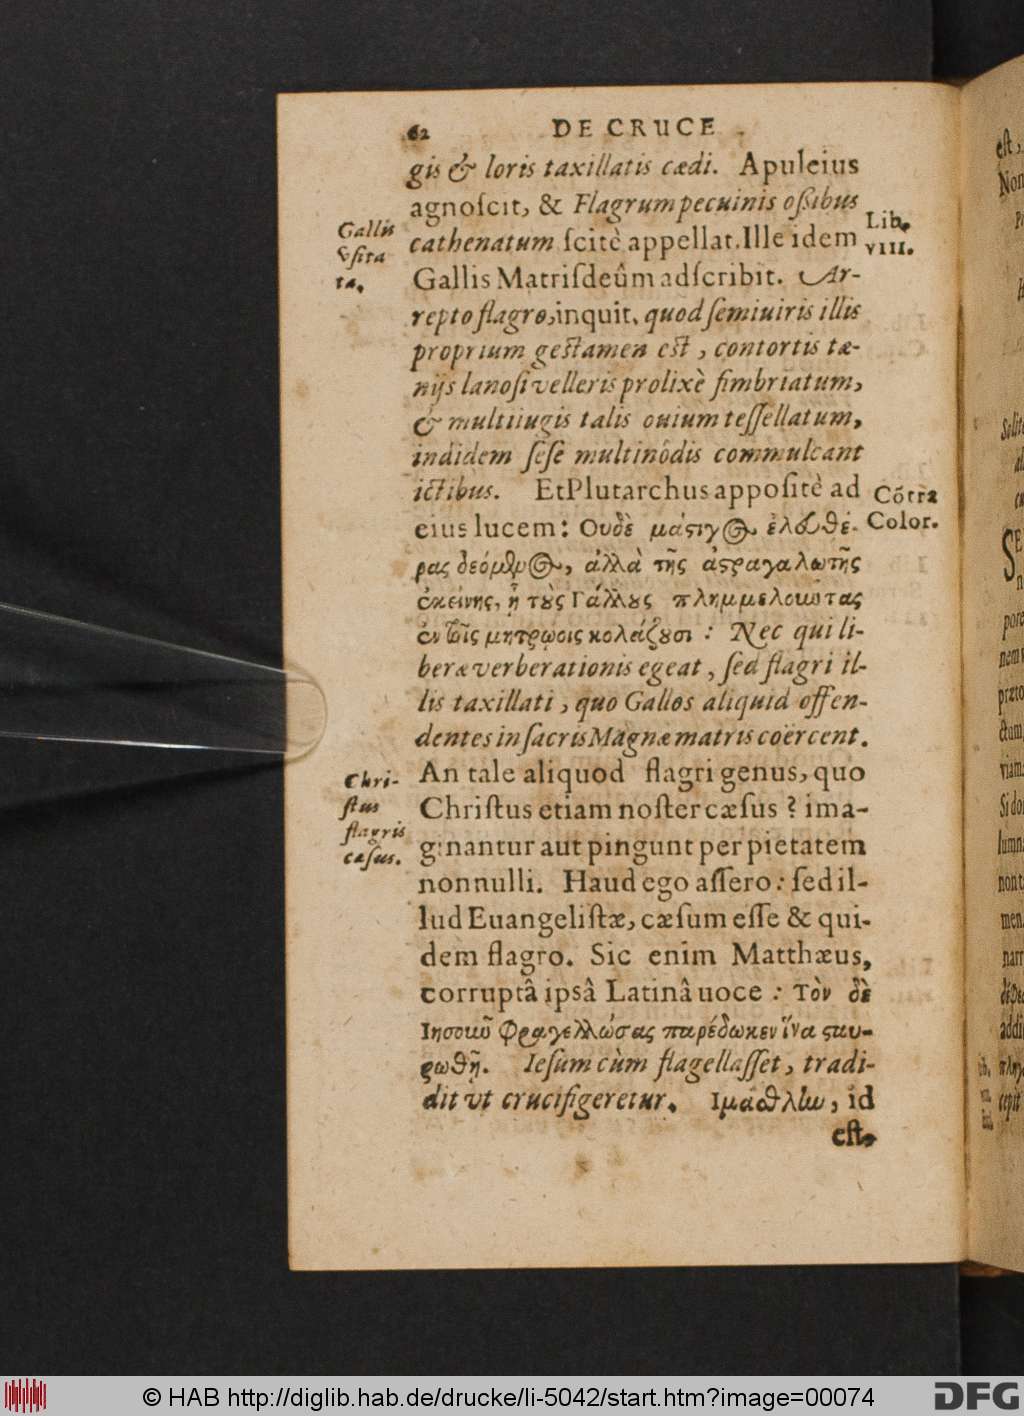 62 DE CRUCE
gis & loris taxillatis cædi. Apuleius
agnoſcit, & Flagrum pecuinis oßibus
cathenatum ſcitè appellat. Ille idem
Gallis Matris deûm adſcribit. Ar-
repto flagro, inquit, quod ſemiuiris illis
proprium geſtamen eſt, contortis tæ-
nijs lanoſi velleris prolixè fimbriatum,
& multiiugis talis ouium teſſellatum,
indidem ſeſe multinôdis commulcant
ictibus. Et Plutarchus appoſitè ad
eius lucem: Ουδὲ μάϛιγος ἐλευθέ-
ρας δεόμενος, ἀλλὰ τῆς ἀϛραγαλωτῆς
ἐκείνης, ᾗ τοὺς Γάλλους πλημμελοωῦτας
ἐν τοῖς μητρῴοις κολάζουσι: Nec qui li-
beræ verberationis egeat, ſed flagri il-
lis taxillati, quo Gallos aliquid offen-
dentes in ſacris Magnæ matris coërcent.
An tale aliquod flagri genus, quo
Chriſtus etiam noſter cæſus? ima-
ginantur aut pingunt per pietatem
nonnulli. Haud ego aſſero: ſed il-
lud Euangeliſtæ, cæſum eſſe & qui-
dem flagro. Sic enim Matthæus,
corruptâ ipsâ Latinâ uoce: Τὸν δὲ
Ιησοιοῦ Φραγελλώσας παρέδωκεν ἵνα ϛαυ-
ρωθῇ. Ieſum cùm flagellaſſet, tradi-
dit vt crucifigeretur. Ιμάσθλω, id
eſt,
Gallis
vſita
ta.
Lib.
VIII.
Cõtra
Color.
Chri-
ſtus
flagris
cæſus.
© HAB http://diglib.hab.de/drucke/li-5042/start.htm?image=00074
DFG